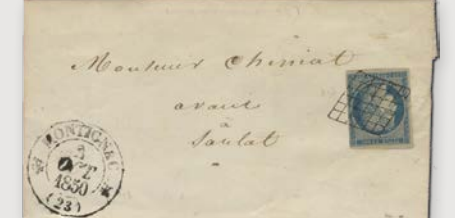 Monsieur Chiniat
avoué
à
Sarlat
MONTIGNAC
3
OCT
1850
(23)